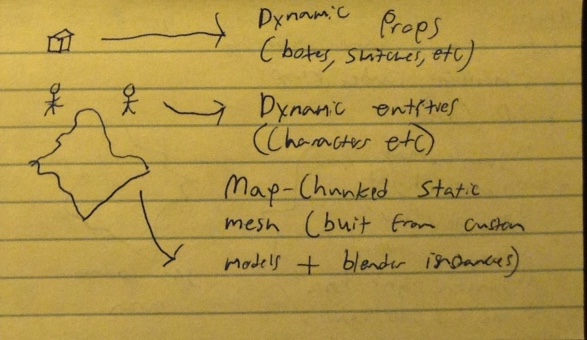 Dynamic Props
(boxes, switches, etc)
Dynamic entities
(Characters etc)
Map-Chunked static
mesh (buit from custom
models + blender instances)